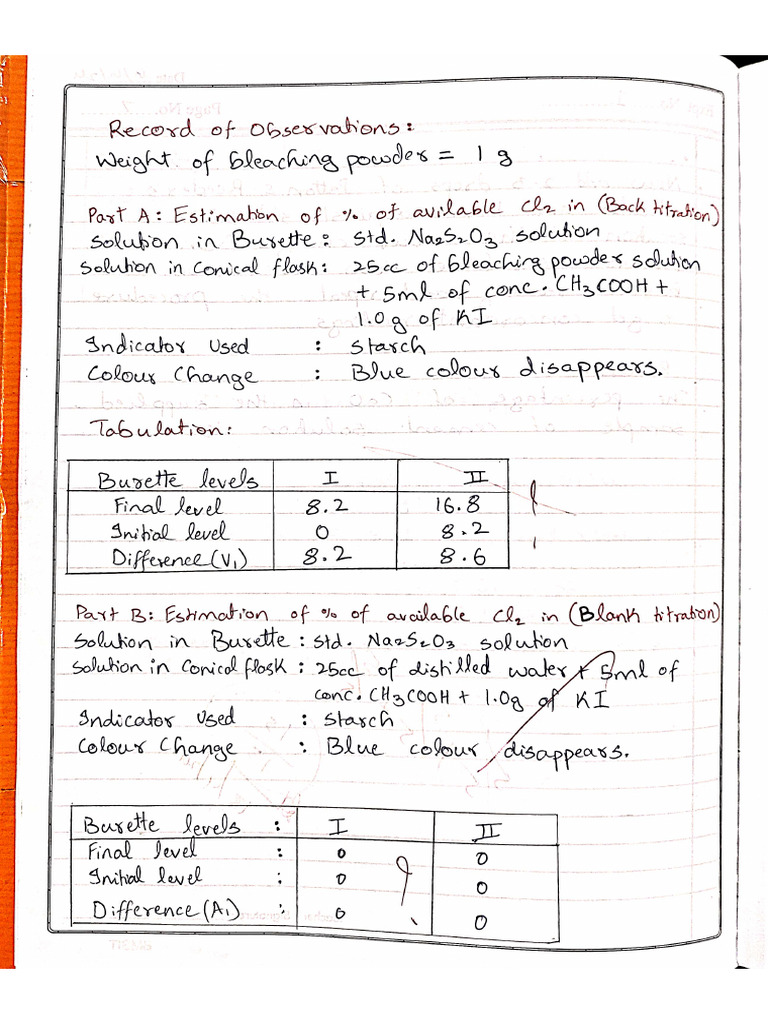 Record of Observations:
Weight of bleaching powder = 1 g
Part A: Estimation of % of available Cl2 in (Back titration)
solution in Burette: std. Na2S2O3 solution
solution in conical flask: 25cc of bleaching powder solution
+ 5ml of conc. CH3COOH +
1.0g of KI
Indicator Used : starch
Colour Change : Blue colour disappears.
Tabulation:
Burette levels I II
Final level 8.2 16.8
Initial level 0 8.2
Difference (V1) 8.2 8.6
Part B: Estimation of % of available Cl2 in (Blank titration)
solution in Burette : std. Na2S2O3 solution
solution in Conical flask : 25cc of distilled water + 5ml of
conc. CH3COOH + 1.0g of KI
Indicator Used : starch
Colour Change : Blue colour disappears.
Burette levels : I II
Final level : 0 0
Initial level : 0 0
Difference (A1) : 0 0